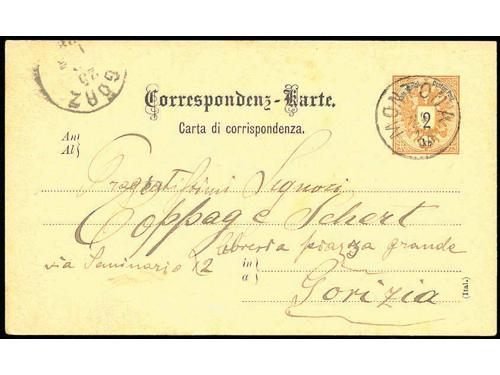 GÖRZ
Correspondenz-Karte.
Carta di corrispondenza.
2
MONTONA
An
Al
Pregiatissimi Signori
Coppag e Schert
libreria piazza grande
via Seminario 12
in
a
Gorizia
(Ital.)